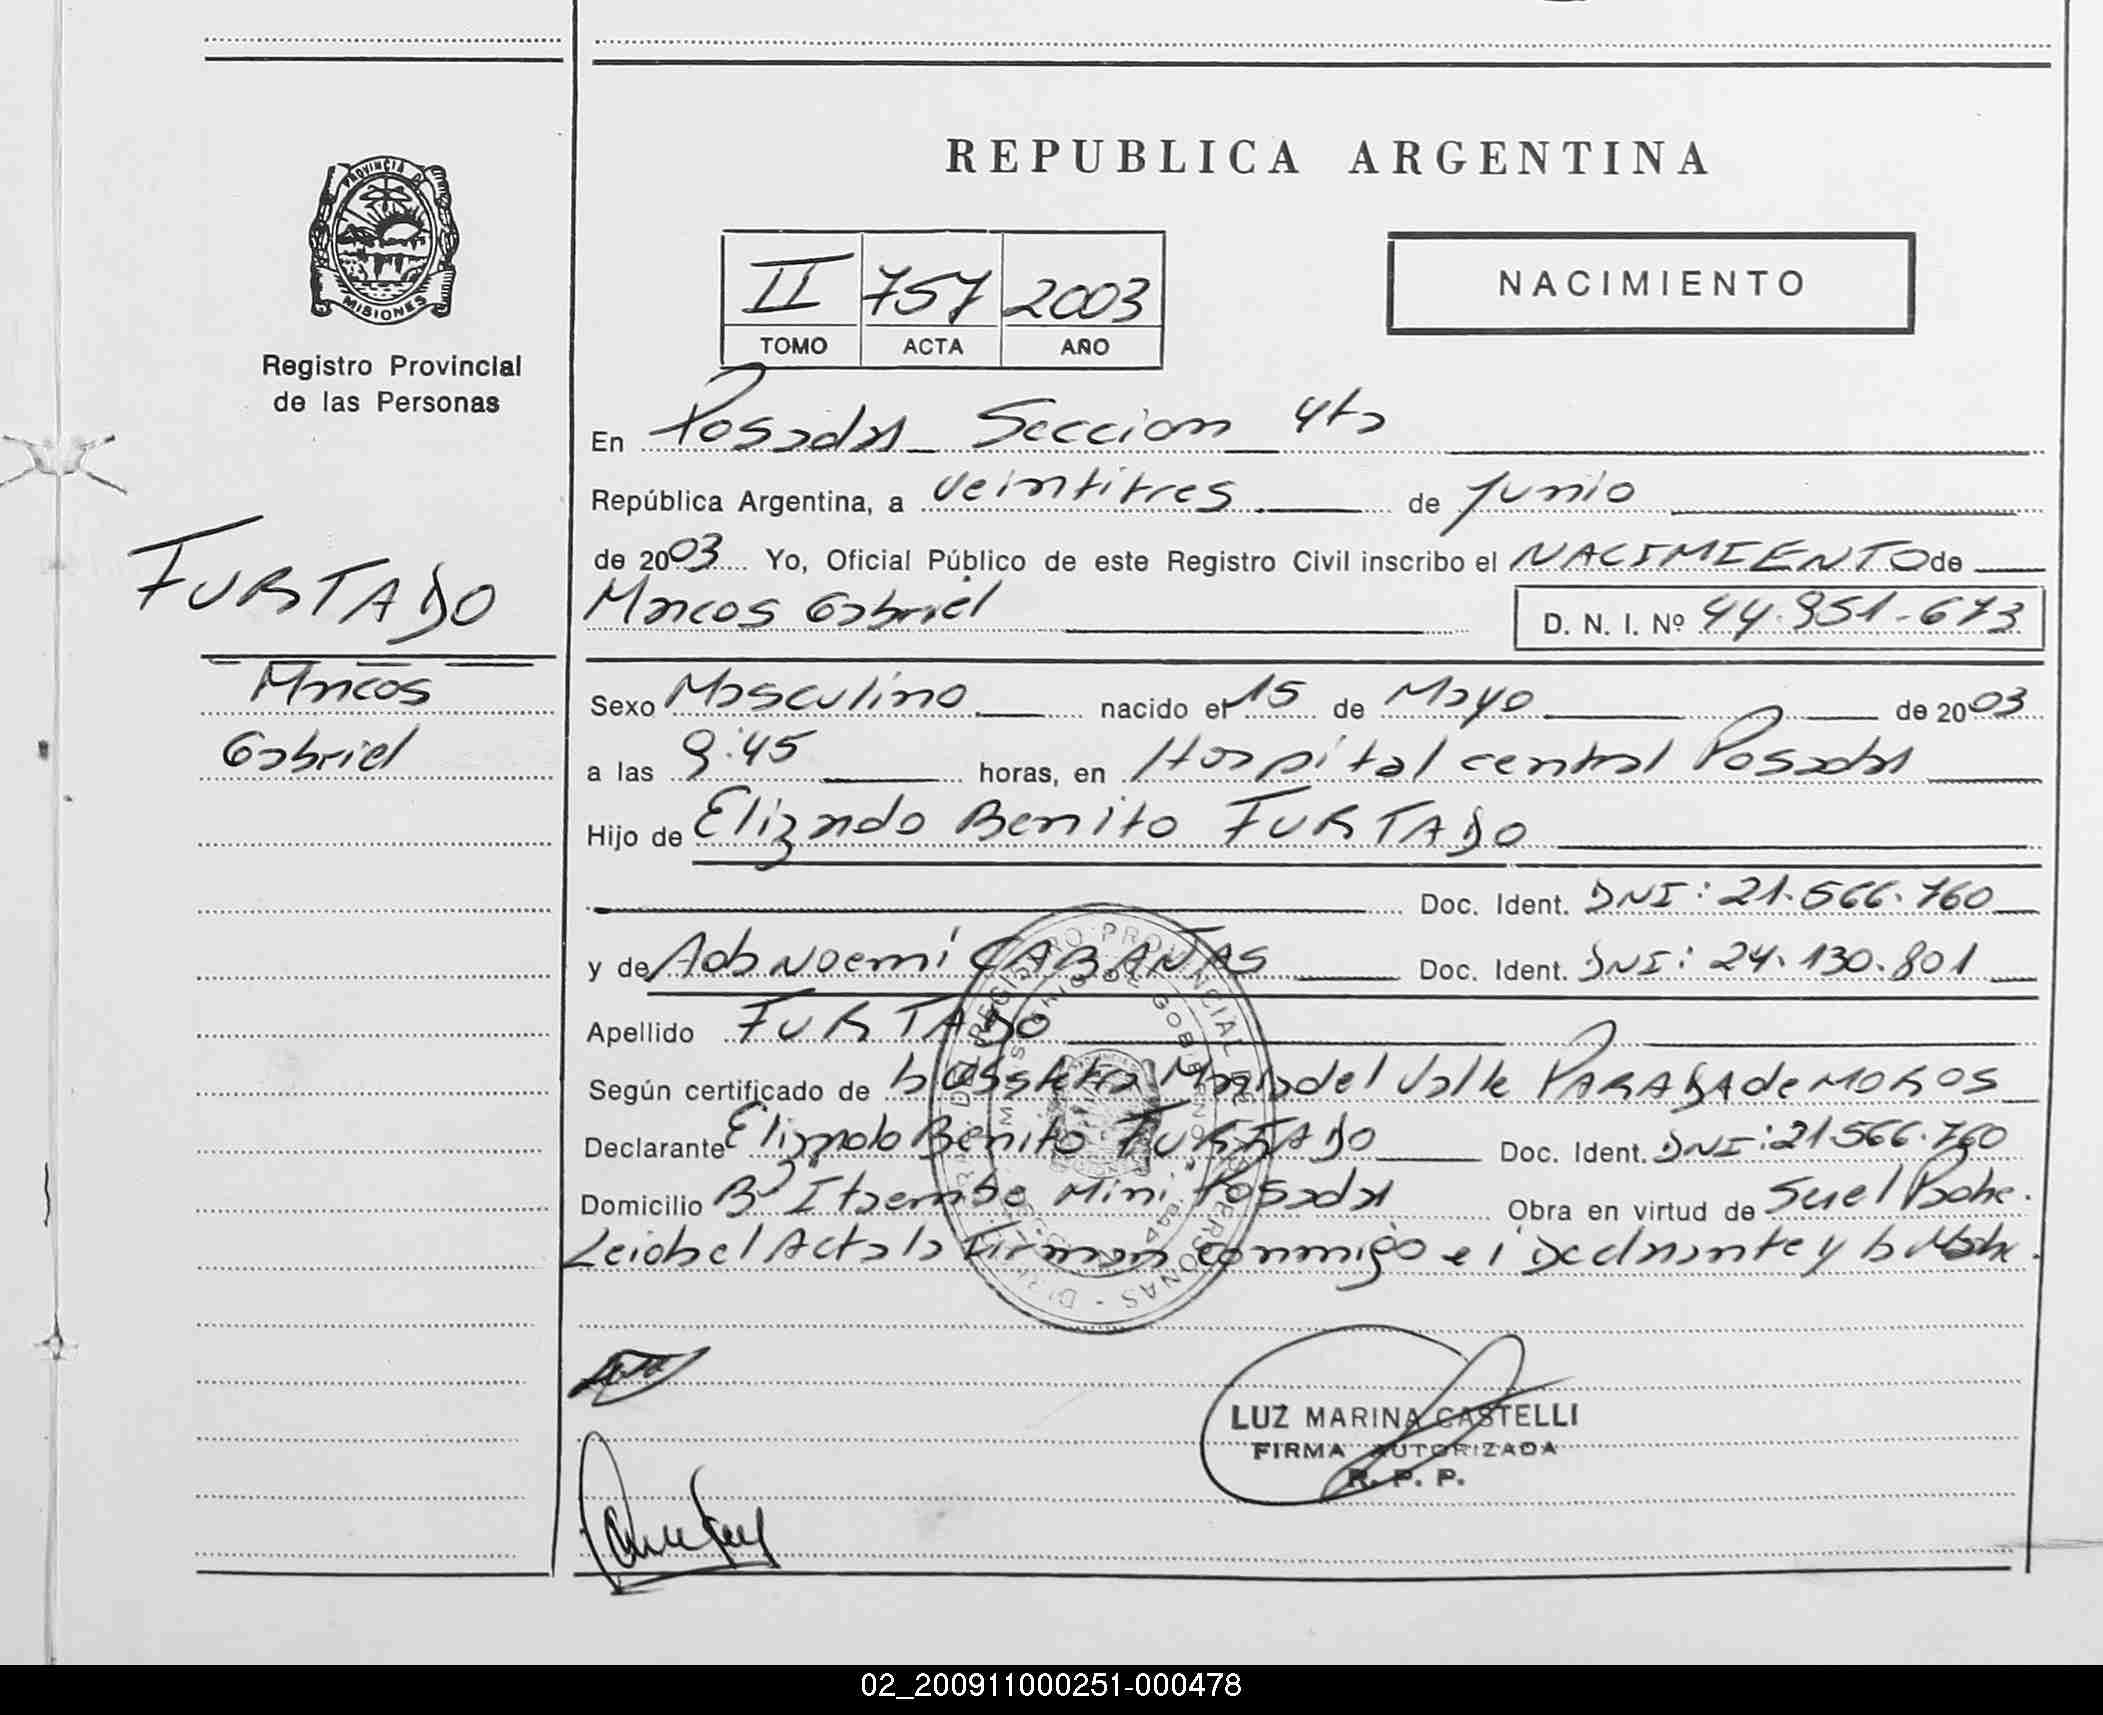 REPUBLICA ARGENTINA
PROVINCIA D
MISIONES
Registro Provincial
de las Personas
II 757 2003
TOMO ACTA AÑO
NACIMIENTO
En Posadas Seccion 4ta
República Argentina, a veintitres de Junio
de 2003 Yo, Oficial Público de este Registro Civil inscribo el NACIMIENTO de
Marcos Gabriel D. N. I. Nº 44.951.673
FURTADO
Marcos
Gabriel
Sexo Masculino nacido el 15 de Mayo de 2003
a las 9:45 horas, en Hospital central Posadas
Hijo de Elizardo Benito FURTADO
Doc. Ident. DNI: 21.566.760
y de Ada Noemi CABAÑAS Doc. Ident. DNI: 24.130.801
Apellido FURTADO
Según certificado de la Obstetra Maria del Valle PARADA de MOROS
Declarante Elizardo Benito FURTADO Doc. Ident. DNI: 21.566.760
Domicilio Bº Itaembe Mini Posadas Obra en virtud de Ser el Padre.
Leida el Acta la Firman conmigo el Declarante y la Madre.
REGISTRO PROVINCIAL DE LAS PERSONAS
LUZ MARINA CASTELLI
FIRMA AUTORIZADA
R. P. P.
02_200911000251-000478